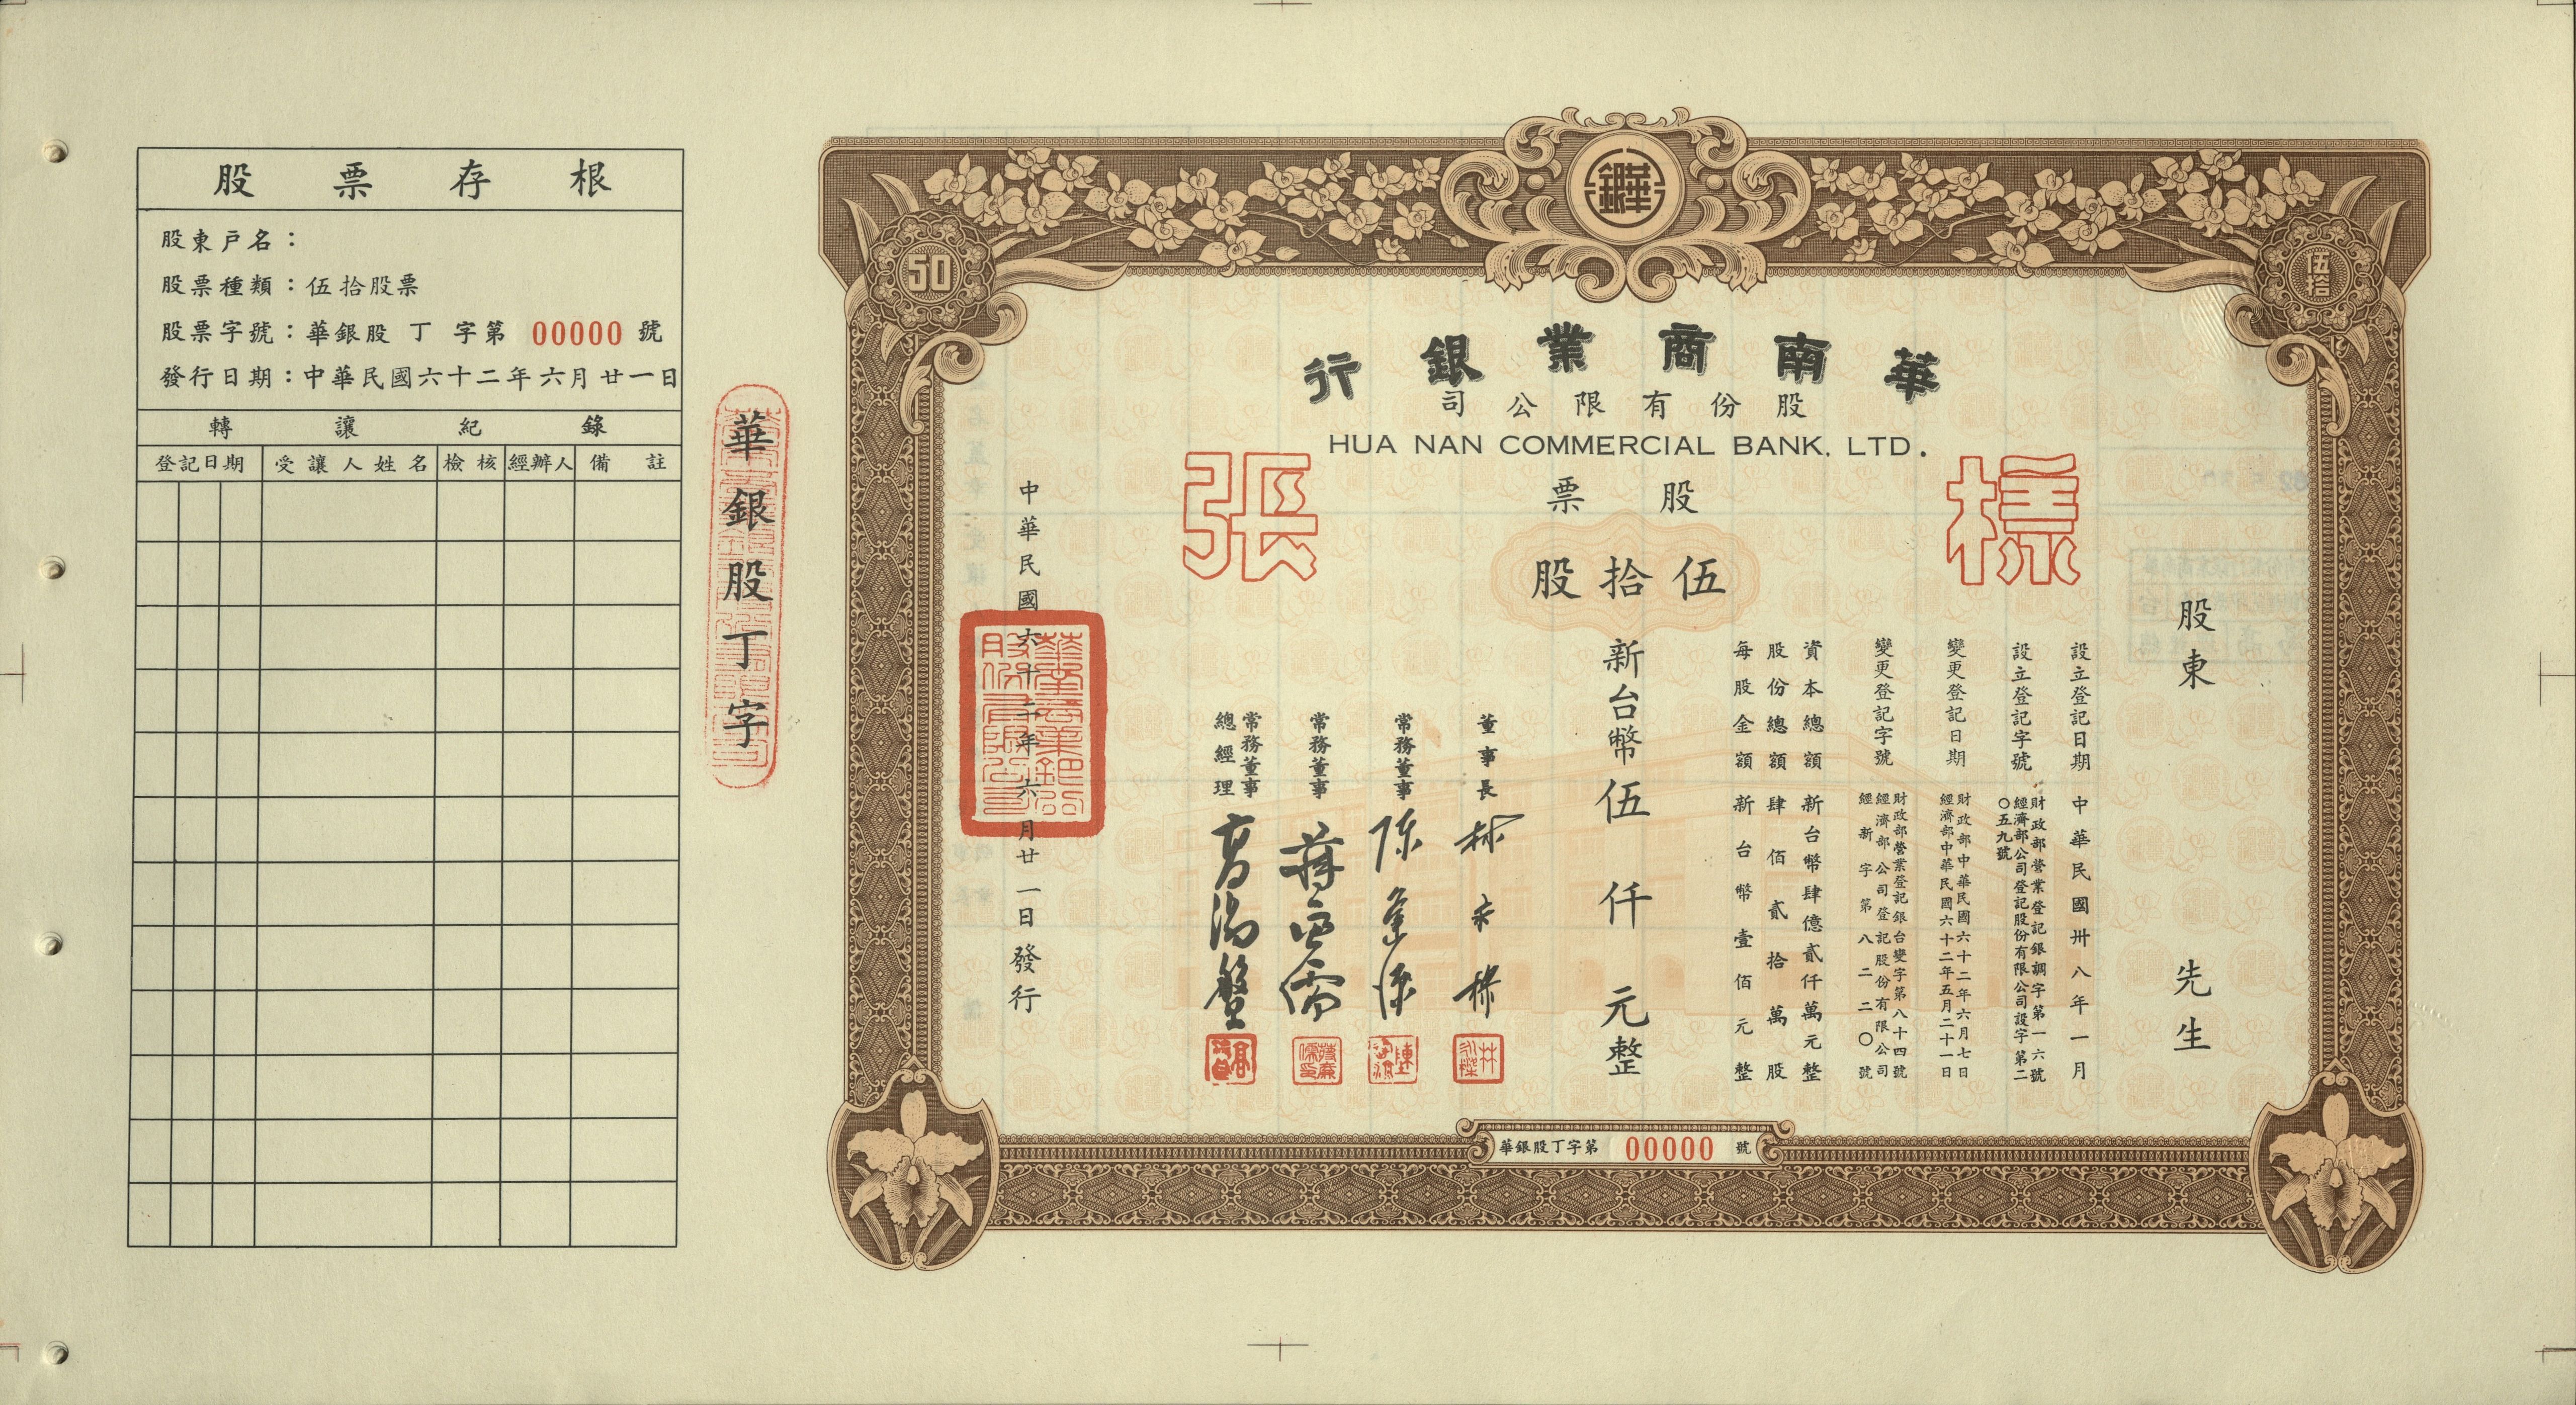 股票存根
股東戶名：
股票種類：伍拾股票
股票字號：華銀股 丁 字第 00000 號
發行日期：中華民國六十二年六月廿一日
轉讓紀錄
登記日期 受讓人姓名 檢核 經辦人 備註
華銀股丁字
50
伍拾
華南商業銀行
股份有限公司
HUA NAN COMMERCIAL BANK, LTD.
樣張
股票
伍拾股
股東 先生
設立登記日期 中華民國卅八年一月
設立登記字號 財政部營業登記銀調字第一六號
經濟部公司登記股份有限公司設字第二
〇五九號
變更登記日期 財政部中華民國六十二年六月七日
經濟部中華民國六十二年五月二十一日
變更登記字號 財政部營業登記銀台變字第八十四號
經濟部公司登記股份有限公司
經新字第八二二〇號
資本總額 新台幣肆億貳仟萬元整
股份總額 肆佰貳拾萬股
每股金額 新台幣壹佰元整
新台幣伍仟元整
董事長
常務董事
常務董事
常務董事
總經理
中華民國六十二年六月廿一日發行
華銀股丁字第 00000 號